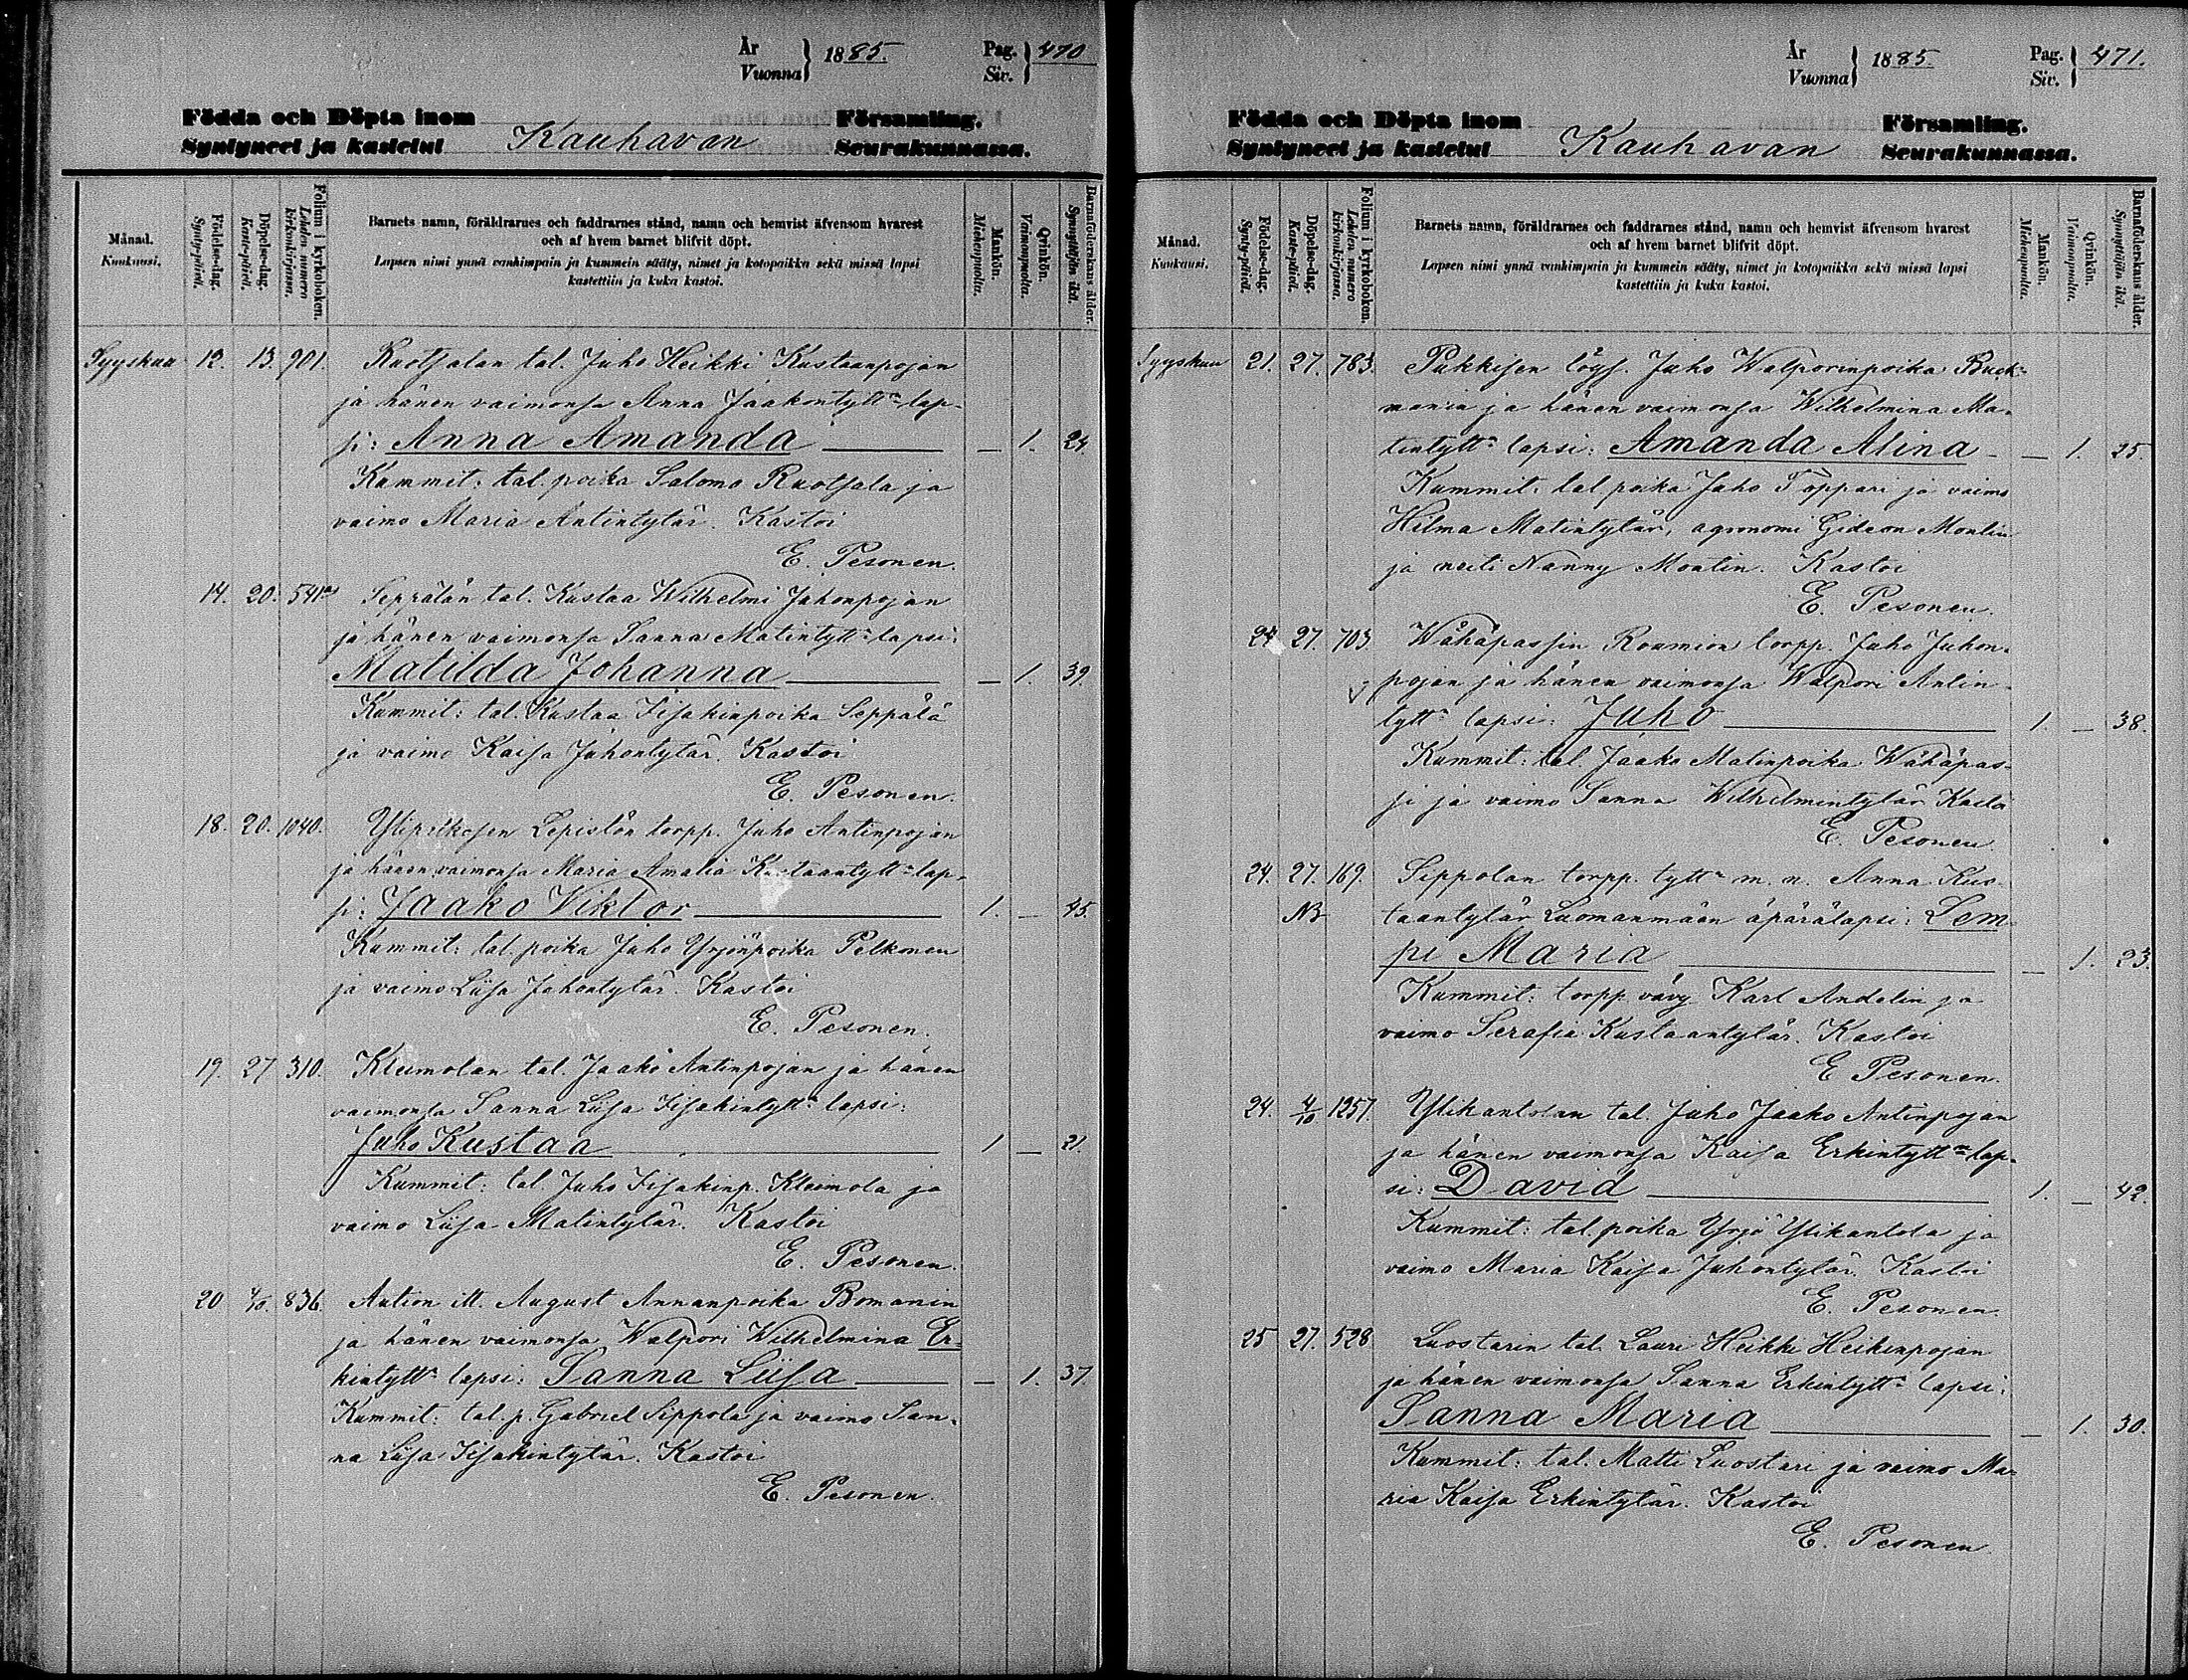 År
Vuonna } 1885. Pag.
Siv. } 470
Födda och Döpta inom Församling.
Syntyneet ja kastetut Kauhavan Seurakunnassa.
Månad.
Kuukausi.
Födelse-dag.
Synty-päivä.
Döpelse-dag.
Kaste-päivä.
Folium i kyrkoboken.
Lehden numero
kirkonkirjassa.
Barnets namn, föräldrarnes och faddrarnes stånd, namn och hemvist äfvensom hvarest
och af hvem barnet blifvit döpt.
Lapsen nimi ynnä vanhimpain ja kummein sääty, nimet ja kotopaikka sekä missä lapsi
kastettiin ja kuka kastoi.
Mankön.
Miehenpuolta.
Qvinkön.
Vaimonpuolta.
Barnaföderskans ålder.
Synnyttäjän ikä.
Syyskuu 12. 13. 901. Ruotsalan tal. Juho Heikki Kustaanpojan
ja hänen vaimonsa Anna Jaakontyttn lap-
si: Anna Amanda — 1. 24.
Kummit: tal. poika Salomo Ruotsala ja
vaimo Maria Antintytär. Kastoi
E. Pesonen.
14. 20. 541a Seppälän tal. Kustaa Wilhelmi Juhonpojan
ja hänen vaimonsa Sanna Matintyttn lapsi:
Matilda Johanna — 1. 39.
Kummit: tal. Kustaa Iisakinpoika Seppälä
ja vaimo Kaisa Juhontytär. Kastoi
E. Pesonen.
18. 20. 1040. Ylipelkosen Lepistön torpp. Juho Antinpojan
ja hänen vaimonsa Maria Amalia Kustaantyttn lap-
si: Jaako Viktor 1. — 45.
Kummit: tal. poika Juho Yrjönpoika Pelkonen
ja vaimo Liisa Juhontytär. Kastoi
E. Pesonen.
19. 27 310. Kleimolan tal. Jaako Antinpojan ja hänen
vaimonsa Sanna Liisa Iisakintyttn lapsi:
Juho Kustaa 1 — 21.
Kummit: tal. Juho Iisakinp. Kleimola ja
vaimo Liisa Matintytär. Kastoi
E. Pesonen.
20 4/10. 836. Aution itl. August Annanpoika Bomanin
ja hänen vaimonsa Walpori Wilhelmina Er-
kintyttn lapsi: Sanna Liisa — 1. 37.
Kummit: tal. p. Gabriel Sippola ja vaimo San-
na Liisa Iisakintytär. Kastoi
E. Pesonen.
År
Vuonna } 1885. Pag.
Siv. } 471.
Födda och Döpta inom Församling.
Syntyneet ja kastetut Kauhavan Seurakunnassa.
Månad.
Kuukausi.
Födelse-dag.
Synty-päivä.
Döpelse-dag.
Kaste-päivä.
Folium i kyrkoboken.
Lehden numero
kirkonkirjassa.
Barnets namn, föräldrarnes och faddrarnes stånd, namn och hemvist äfvensom hvarest
och af hvem barnet blifvit döpt.
Lapsen nimi ynnä vanhimpain ja kummein sääty, nimet ja kotopaikka sekä missä lapsi
kastettiin ja kuka kastoi.
Mankön.
Miehenpuolta.
Qvinkön.
Vaimonpuolta.
Barnaföderskans ålder.
Synnyttäjän ikä.
Syyskuu 21. 27. 783. Pukkisen löys. Juho Walporinpoika Buck-
manin ja hänen vaimonsa Wilhelmina Ma-
tintyttn lapsi: Amanda Alina — 1. 25
Kummit: tal poika Juho Toppari ja vaimo
Hilma Matintytär, agronomi Gideon Montin
ja neiti Nanny Montin. Kastoi
E. Pesonen.
24 27. 703 Wähäpassin Roumion torpp. Juho Juhon-
pojan ja hänen vaimonsa Walpori Antin-
tyttn lapsi: Juho 1. — 38.
Kummit: tal. Jaako Matinpoika Wähäpas-
si ja vaimo Sanna Wilhelmintytär
E. Pesonen
24. 27. 169. Sippolan torpp. tyttn m. n. Anna Kus-
NB taantytär Luomanmäen äpärälapsi: Lem-
pi Maria — 1. 23.
Kummit: torpp. vävy Karl Andelin ja
vaimo Serafia Kustaantytär. Kastoi
E Pesonen.
24. 4/10 1257. Ylikantolan tal. Juho Jaako Antinpojan
ja hänen vaimonsa Kaisa Erkintyttn lap-
si: David 1. — 42.
Kummit: tal. poika Yrjö Ylikantola ja
vaimo Maria Kaisa Juhontytär. Kastoi
E. Pesonen.
25 27. 528 Luostarin tal. Lauri Heikki Heikinpojan
ja hänen vaimonsa Sanna Erkintyttn lapsi:
Sanna Maria — 1. 30.
Kummit: tal. Matti Luostari ja vaimo Ma-
ria Kaisa Erkintytär. Kastoi
E. Pesonen